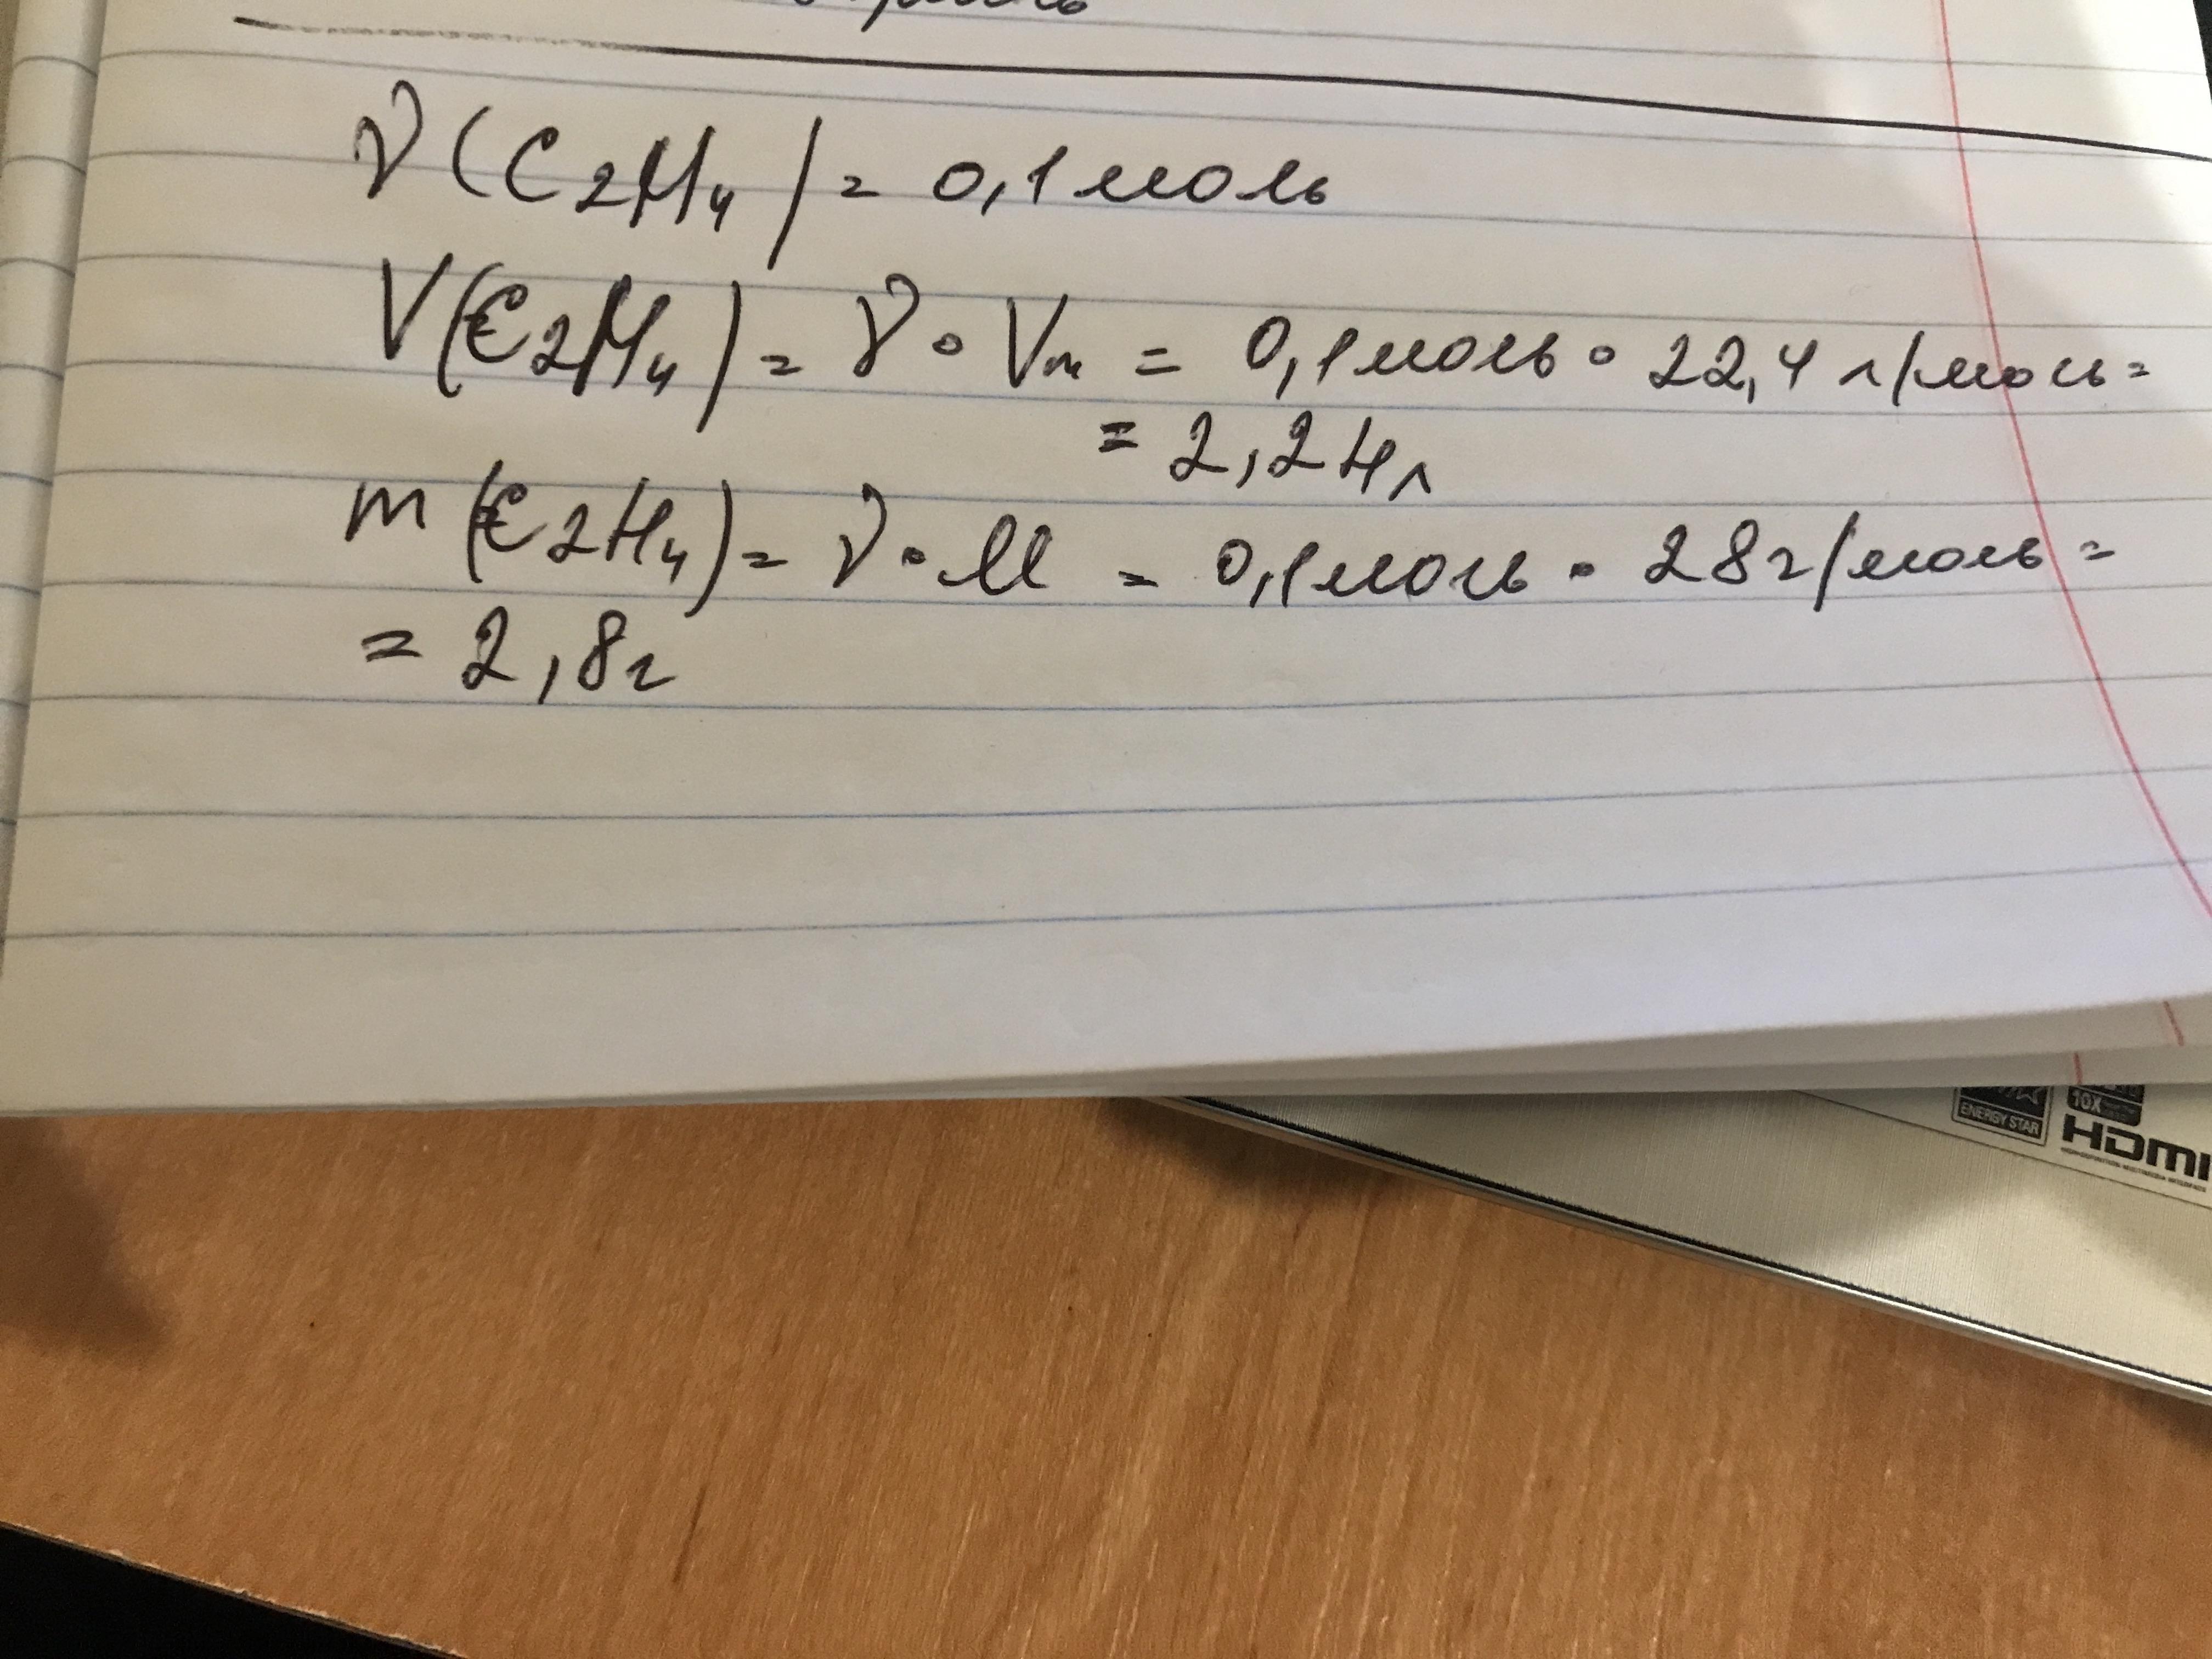 ν(C2H4) = 0,1 моль
V(C2H4) = ν · Vm = 0,1 моль · 22,4 л/моль =
= 2,24 л
m(C2H4) = ν · M = 0,1 моль · 28 г/моль =
= 2,8 г
ENERGY STAR
10X
HDMI